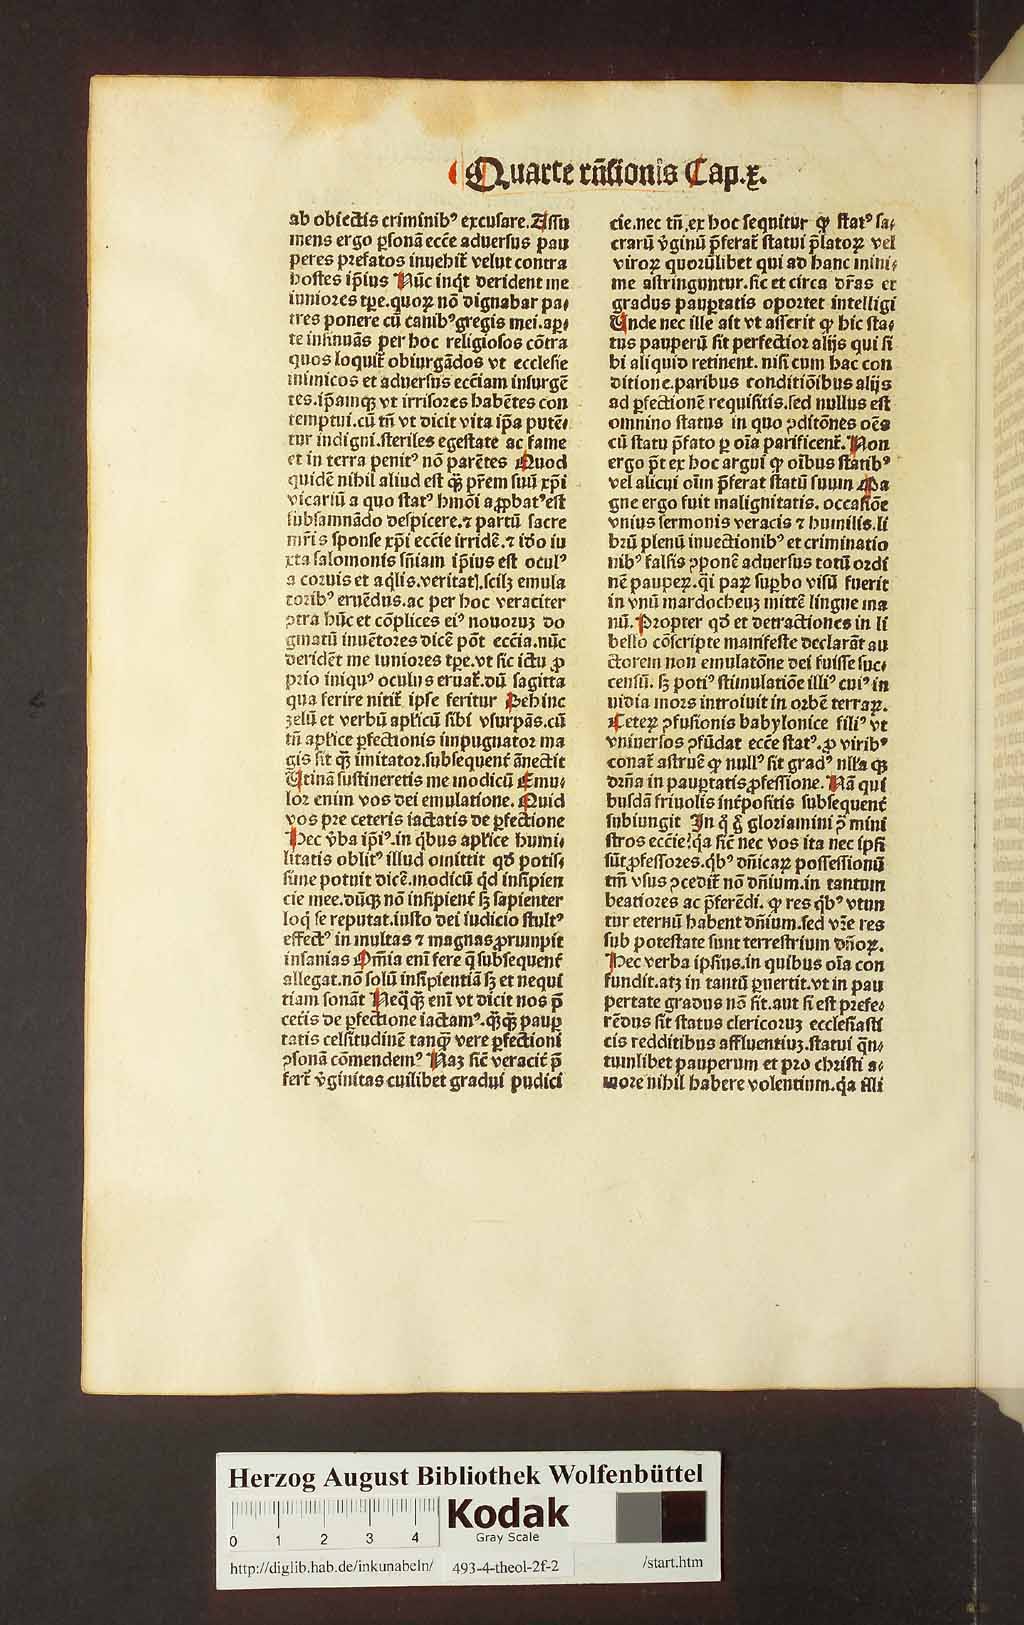 Quarte rn̄sionis Cap.x.
ab obiectis criminibꝰ excusare.Assu
mens ergo ꝑsonā ecce aduersus pau
peres prefatos inuehit̄ velut contra
hostes ip̄ius Nūc inqt derident me
iuniores tꝑe.quoꝝ nō dignabar pa⸗
tres ponere cū canibꝰ gregis mei.aꝑ⸗
te insinuās per hoc religiosos cōtra
quos loquit̄ obiurgādos vt ecclesie
inimicos et aduersus ecc̄iam insurgē
tes.ip̄amqꝫ vt irrisores habētes con
temptui.cū tn̄ vt dicit vita ip̄a putē⸗
tur indigni.steriles egestate ac fame
et in terra penitꝰ nō parētes Quod
quidē nihil aliud est qꝫ pr̄em suū xp̄i
vicariū a quo statꝰ hmōi aꝓbatꝰ est
subsannādo despicere.⁊ partū sacre
mr̄is sponse xp̄i ecc̄ie irridē.⁊ iđo iu
xta salomonis sn̄iam ip̄ius est oculꝰ
a coruis et aqlis.veritatꝭ.scilꝫ emula
toribꝰ eruēdus.ac per hoc veraciter
ↄtra hūc et cōplices eiꝰ nouoruꝫ do
gmatū inuētores dicē pōt ecc̄ia.nūc
deridēt me iuniores tꝑe.vt sic ictu ꝓ
prio iniquꝰ oculus eruat̄.dū sagitta
qua ferire nitit̄ ipse feritur Dehinc
zelū et verbū apl̄icū sibi vsurpās.cū
tn̄ apl̄ice ꝑfectionis impugnator ma
gis sit qꝫ imitator.subsequent̄ ānectit
Utinā sustineretis me modicū Emu⸗
lor enim vos dei emulatione. Quid
vos pre ceteris iactatis de ꝑfectione
Hec v̄ba ip̄iꝰ.in qbus apl̄ice humi⸗
litatis oblitꝰ illud omittit qđ potis⸗
sime potuit dicē.modicū qd insipien
cie mee.dūqꝫ nō insipient̄ sꝫ sapienter
loq̄ se reputat.iusto dei iudicio stultꝰ
effectꝰ in multas ⁊ magnas ꝓrumpit
insanias Om̄ia enī fere q̄ subsequent̄
allegat.nō solū insipientiā sꝫ et nequi
tiam sonāt Neq̄qꝫ enī vt dicit nos p̄
ceteris de ꝑfectione iactamꝰ.q̄qꝫ pauꝑ
tatis celsitudinē tanqꝫ vere ꝑfectioni
ↄsonā cōmendemꝰ Naꝫ sic̄ veracit̄ p̄
fert̄ v̄ginitas cuilibet gradui pudici
cie.nec tn̄.ex hoc sequitur ꝙ statꝰ sa⸗
crarū v̄ginū p̄ferat̄ statui p̄latoꝝ vel
viroꝝ quorūlibet qui ad hanc mini⸗
me astringuntur.sic et circa dr̄as et
gradus pauꝑtatis oportet intelligi
Unde nec ille ait vt asserit ꝙ hic sta⸗
tus pauperū sit perfectior alijs qui si
bi aliquid retinent. nisi cum hac con
ditione.paribus conditiōibus alijs
ad ꝑfectionē requisitis.sed nullus est
omnino status in quo ↄditōnes oēs
cū statu p̄fato ꝑ oīa parificent̄.Non
ergo p̄t ex hoc argui ꝙ oībus statibꝰ
vel alicui oīm p̄ferat statū suum Ma
gne ergo fuit malignitatis. occasiōe
vnius sermonis veracis ⁊ humilis.li
brū plenū inuectionibꝰ et criminatio
nibꝰ falsis ↄponē aduersus totū ordi
nē pauꝑeꝝ.qi paꝝ suꝑbo visū fuerit
in vnū mardocheuꝫ mittē lingue ma
nū.Propter qđ et detractiones in li
bello cōscripte manifeste declarāt au
ctorem non emulatōne dei fuisse suc⸗
censū. sꝫ potiꝰ stimulatiōe illiꝰ cuiꝰ in
uidia mors introiuit in orbē terraꝝ.
Ceteꝝ ↄfusionis babylonice filiꝰ vt
vniuersos ↄfūdat ecce statꝰ.ꝓ viribꝰ
conat̄ astruē ꝙ nullꝰ sit gradꝰ nlla qꝫ
dr̄na in pauꝑtatis ꝓfessione.Nā qui
busdā friuolis int̄positis subsequent̄
subiungit In q̄ ḡ gloriamini p̄ mini
stros ecc̄ie?qa sic̄ nec vos ita nec ipsi
sūt ꝓfessores.qbꝰ dn̄icaꝝ possessionū
tm̄ vsus ↄcedit̄ nō dn̄ium.in tantum
beatiores ac p̄ferēdi. ꝙ res qbꝰ vtun
tur eternū habent dn̄ium.sed vr̄e res
sub potestate sunt terrestrium dn̄oꝝ.
Hec verba ipsius.in quibus oīa con
fundit.atꝫ in tantū ꝑuertit.vt in pau
pertate gradus nō sit.aut si est prefe⸗
rēdus sit status clericoruꝫ ecclesiasti
cis redditibus affluentiuꝫ.statui q̄n⸗
tumlibet pauperum et pro christi a⸗
more nihil habere volentium.qa illi
Herzog August Bibliothek Wolfenbüttel
0 1 2 3 4
Kodak
Gray Scale
http://diglib.hab.de/inkunabeln/ 493-4-theol-2f-2 /start.htm